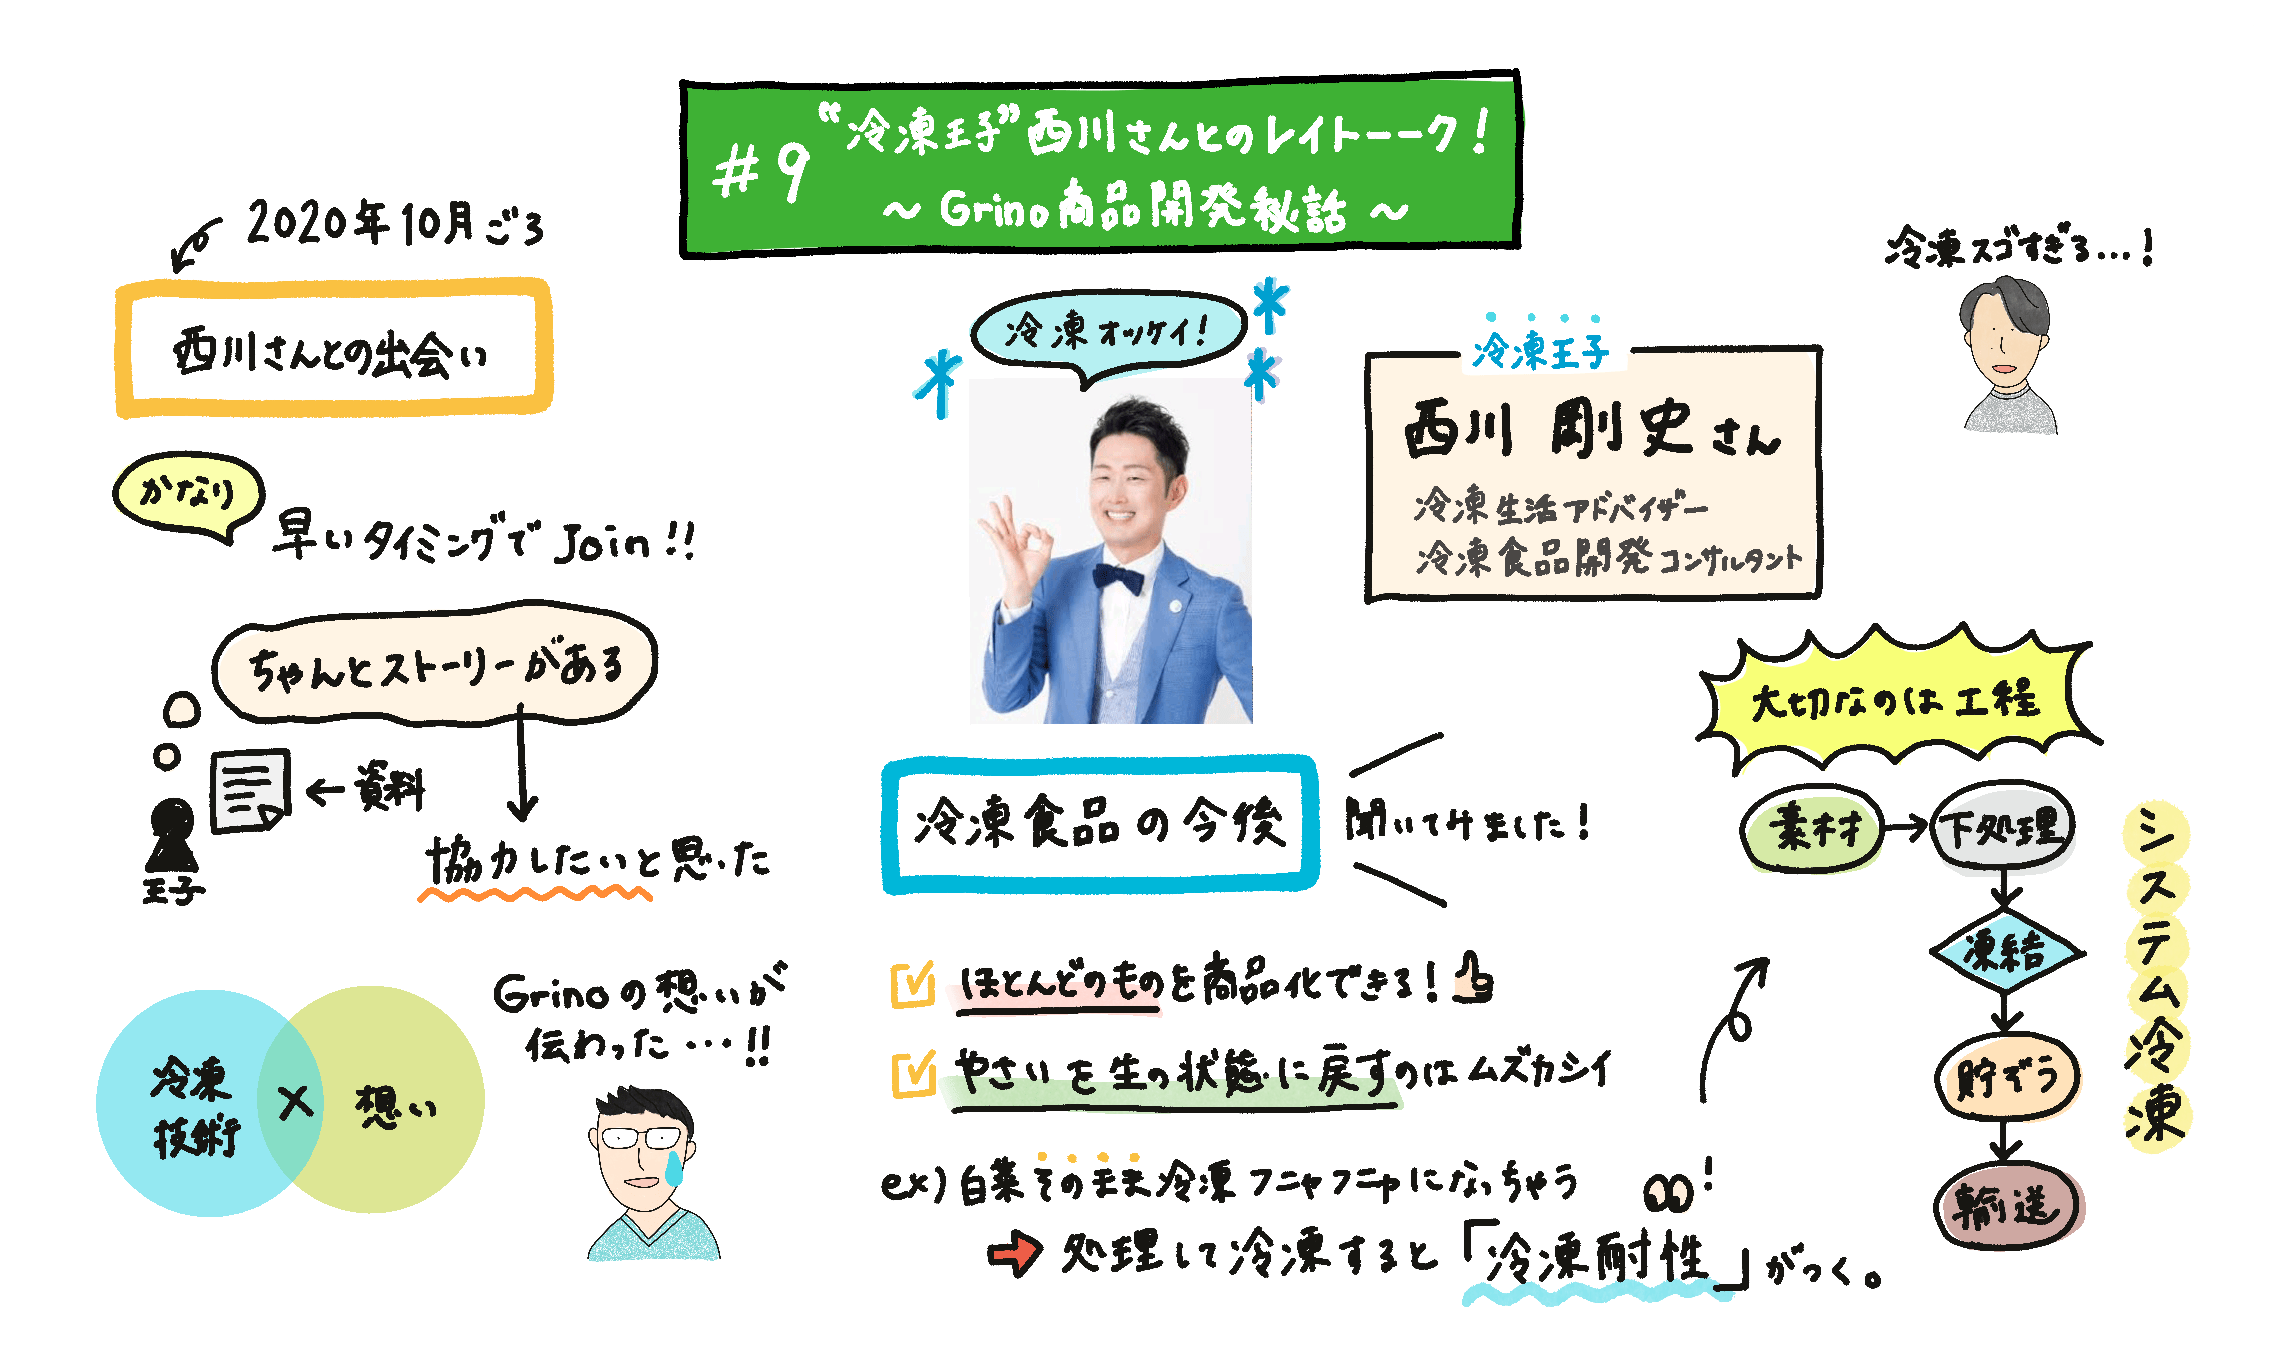 #9 “冷凍王子”西川さんとのレイトーーク!
〜Grino商品開発秘話〜
2020年10月ごろ
西川さんとの出会い
かなり
早いタイミングでJoin!!
ちゃんとストーリーがある
←資料
王子
協力したいと思った
冷凍
技術
×
想い
Grinoの想いが
伝わった…!!
冷凍オッケイ!
冷凍王子
西川 剛史さん
冷凍生活アドバイザー
冷凍食品開発コンサルタント
冷凍スゴすぎる…!
冷凍食品の今後
聞いてみました!
ほとんどのものを商品化できる!
やさいを生の状態に戻すのはムズカシイ
ex)白菜そのまま冷凍フニャフニャになっちゃう
処理して冷凍すると「冷凍耐性」がつく。
!
大切なのは工程
素材→下処理
凍結
貯ぞう
輸送
システム冷凍